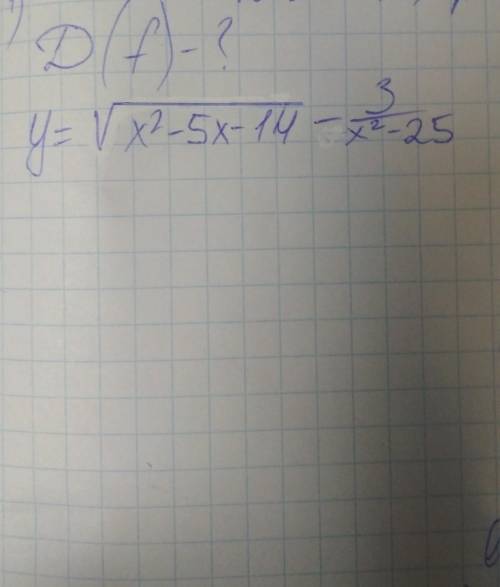 D(f)-?
y = √(x² - 5x - 14) - 3/(x² - 25)